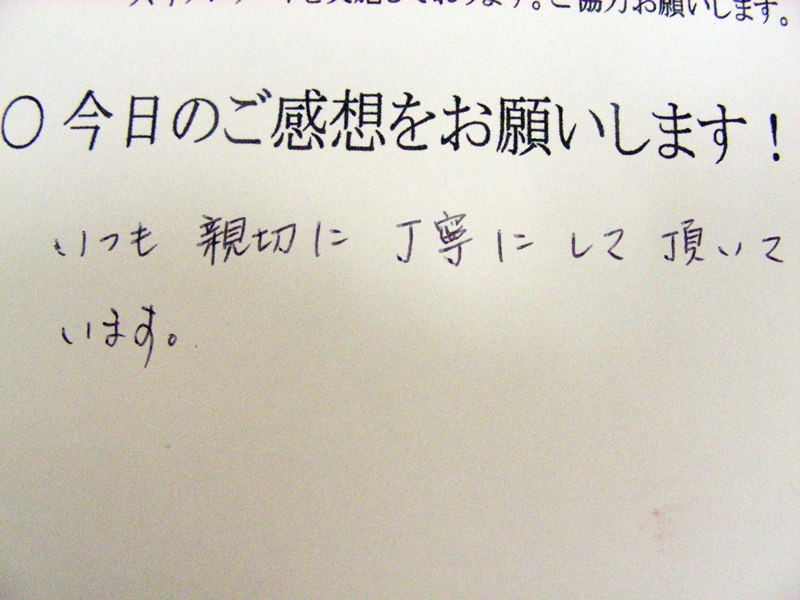 を実施しております。ご協力お願いします。
○今日のご感想をお願いします！
いつも 親切に 丁寧に して 頂いて
います。